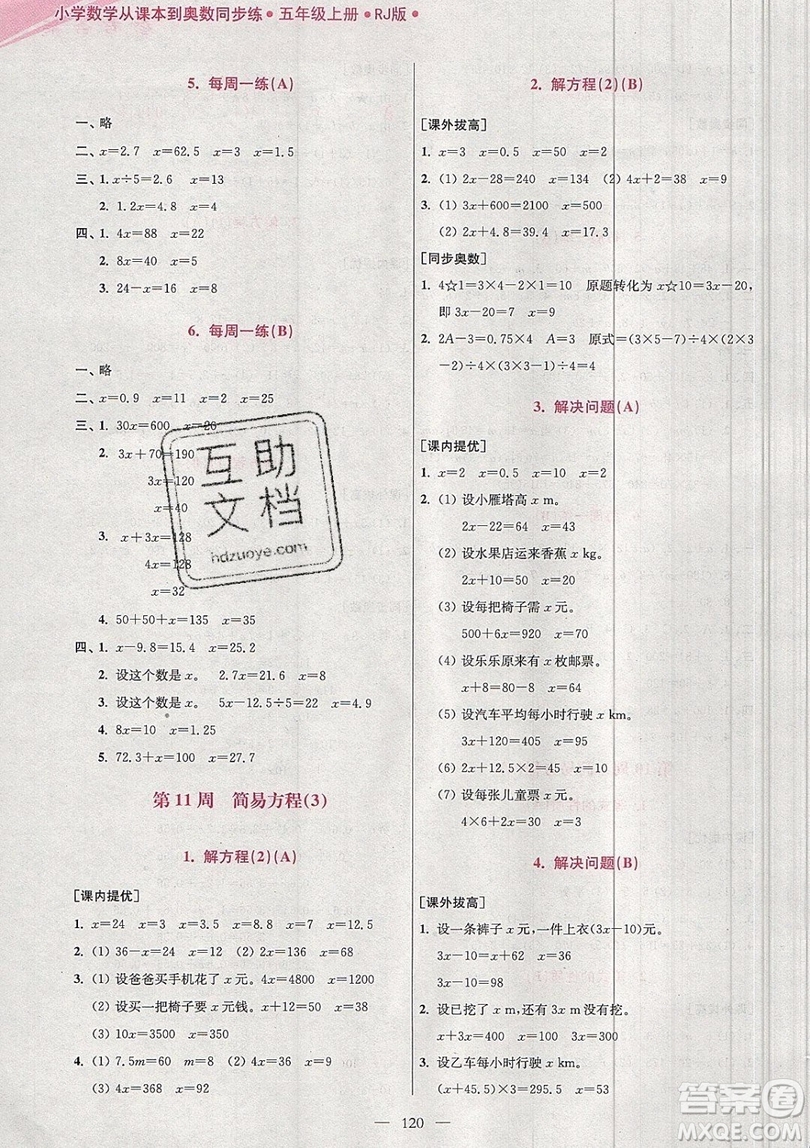 小学数学从课本到奥数同步练·五年级上册·RJ版·
5. 每周一练(A)
一、略
二、x=2.7 x=62.5 x=3 x=1.5
三、1. x÷5=2.6 x=13
2. 1.2x=4.8 x=4
四、1. 4x=88 x=22
2. 8x=40 x=5
3. 24-x=16 x=8
6. 每周一练(B)
一、略
二、x=0.9 x=11 x=2 x=25
三、1. 30x=600 x=20
2. 3x+70=190
3x=120
x=40
3. x+3x=128
4x=128
x=32
4. 50+50+x=135 x=35
四、1. x-9.8=15.4 x=25.2
2. 设这个数是 x。 2.7x=21.6 x=8
3. 设这个数是 x。 5x-12.5÷5=25 x=5.5
4. 8x=10 x=1.25
5. 72.3+x=100 x=27.7
第 11 周 简易方程(3)
1. 解方程(2)(A)
[课内提优]
1. x=24 x=3 x=3.5 x=8.8 x=7 x=12.5
2. (1) 36-x=24 x=12 (2) 3x=36 x=12
3. (1) 设爸爸买手机花了 x 元。 4x=4800 x=1200
(2) 设买一把椅子要 x 元钱。 x+12=50 x=38
(3) 10x=3500 x=350
4. (1) 7.5m=60 m=8 (2) x+19=45 x=26
(3) 4x=368 x=92
2. 解方程(2)(B)
[课外拔高]
1. x=3 x=0.5 x=50 x=2
2. (1) 2x-28=240 x=134 (2) 4x+2=38 x=9
3. (1) 3x+600=2100 x=500
(2) 2x+4.8=39.4 x=17.3
[同步奥数]
1. 4☆1=3×4-2×1=10 原题转化为 x☆10=3x-20,
即 3x-20=7 x=9
2. 2A-3=0.75×4 A=3 原式=(3×5-7)÷4×(3×3
-2)÷4×(3×1-2)÷4=4
3. 解决问题(A)
[课内提优]
1. x=2 x=0.5 x=10 x=2
2. (1) 设小雁塔高 x m。
2x-22=64 x=43
(2) 设水果店运来香蕉 x kg。
2x+10=50 x=20
(3) 设每把椅子需 x 元。
500+6x=920 x=70
(4) 设乐乐原来有 x 枚邮票。
x+8=80-8 x=64
(5) 设汽车平均每小时行驶 x km。
3x+120=405 x=95
(6) 2x+12.5=20.5 x=4
(7) 设每张儿童票 x 元。
4×6+2x=30 x=3
4. 解决问题(B)
[课外拔高]
1. 设一条裤子 x 元,一件上衣(3x-10)元。
3x-10=x+62 x=36
3x-10=98
2. 设已挖了 x m,还有 3x m没有挖。
x+3x=400 x=100 3x=300
3. 设乙车每小时行驶 x km。
(x+45.5)×3=295.5 x=53
— 120 —
互助
文档
hdzuoye.com
答案圈
MXQE.COM